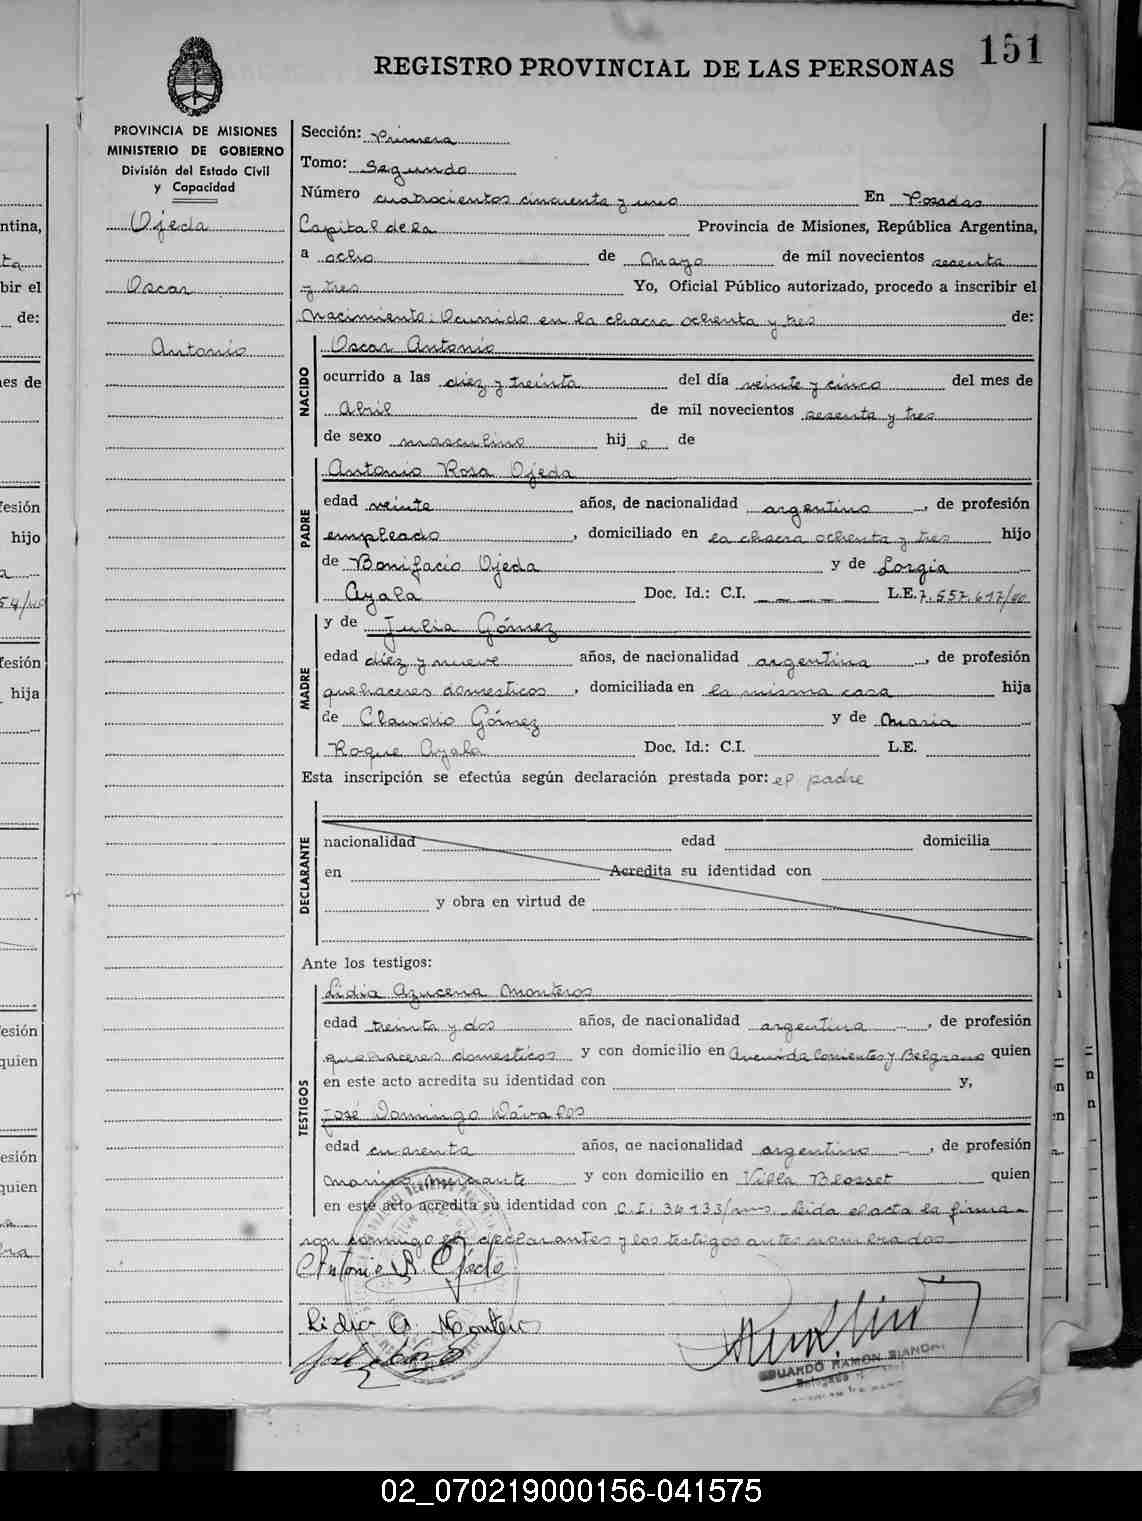 151
REGISTRO PROVINCIAL DE LAS PERSONAS
PROVINCIA DE MISIONES
MINISTERIO DE GOBIERNO
División del Estado Civil
y Capacidad
Ojeda
Oscar
Antonio
Sección: Primera
Tomo: Segundo
Número cuatrocientos cincuenta y uno En Posadas
Capital de la Provincia de Misiones, República Argentina,
a ocho de Mayo de mil novecientos sesenta
y tres Yo, Oficial Público autorizado, procedo a inscribir el
Nacimiento: Ocurrido en la chacra ochenta y tres de:
NACIDO
Oscar Antonio
ocurrido a las diez y treinta del día veinte y cinco del mes de
Abril de mil novecientos sesenta y tres
de sexo masculino hij o de
PADRE
Antonio Rosa Ojeda
edad veinte años, de nacionalidad argentino, de profesión
empleado, domiciliado en la chacra ochenta y tres hijo
de Bonifacio Ojeda y de Lorgia
Ayala Doc. Id.: C.I. — — — — L.E. 7.557.617/
MADRE
y de Julia Gómez
edad diez y nueve años, de nacionalidad argentina, de profesión
quehaceres domesticos, domiciliada en la misma casa hija
de Claudio Gómez y de Maria
Roque Ayala Doc. Id.: C.I. L.E.
Esta inscripción se efectúa según declaración prestada por: el padre
DECLARANTE
nacionalidad edad domicilia
en Acredita su identidad con
y obra en virtud de
Ante los testigos:
TESTIGOS
Lidia Azucena Monteros
edad treinta y dos años, de nacionalidad argentina, de profesión
quehaceres domesticos y con domicilio en Avenida Corrientes y Belgrano quien
en este acto acredita su identidad con y,
José Domingo
edad cuarenta años, de nacionalidad argentino, de profesión
y con domicilio en Villa Blosset quien
en este acto acredita su identidad con C.I: 34133/ Leida el acta la firma
ron conmigo el declarantes y los testigos antes nombrados
Antonio R. Ojeda
Lidia A. Monteros
EDUARDO RAMON BIANCHI
ntina,
bir el
de:
es de
esión
hijo
esión
hija
esión
quien
esión
quien
02_070219000156-041575